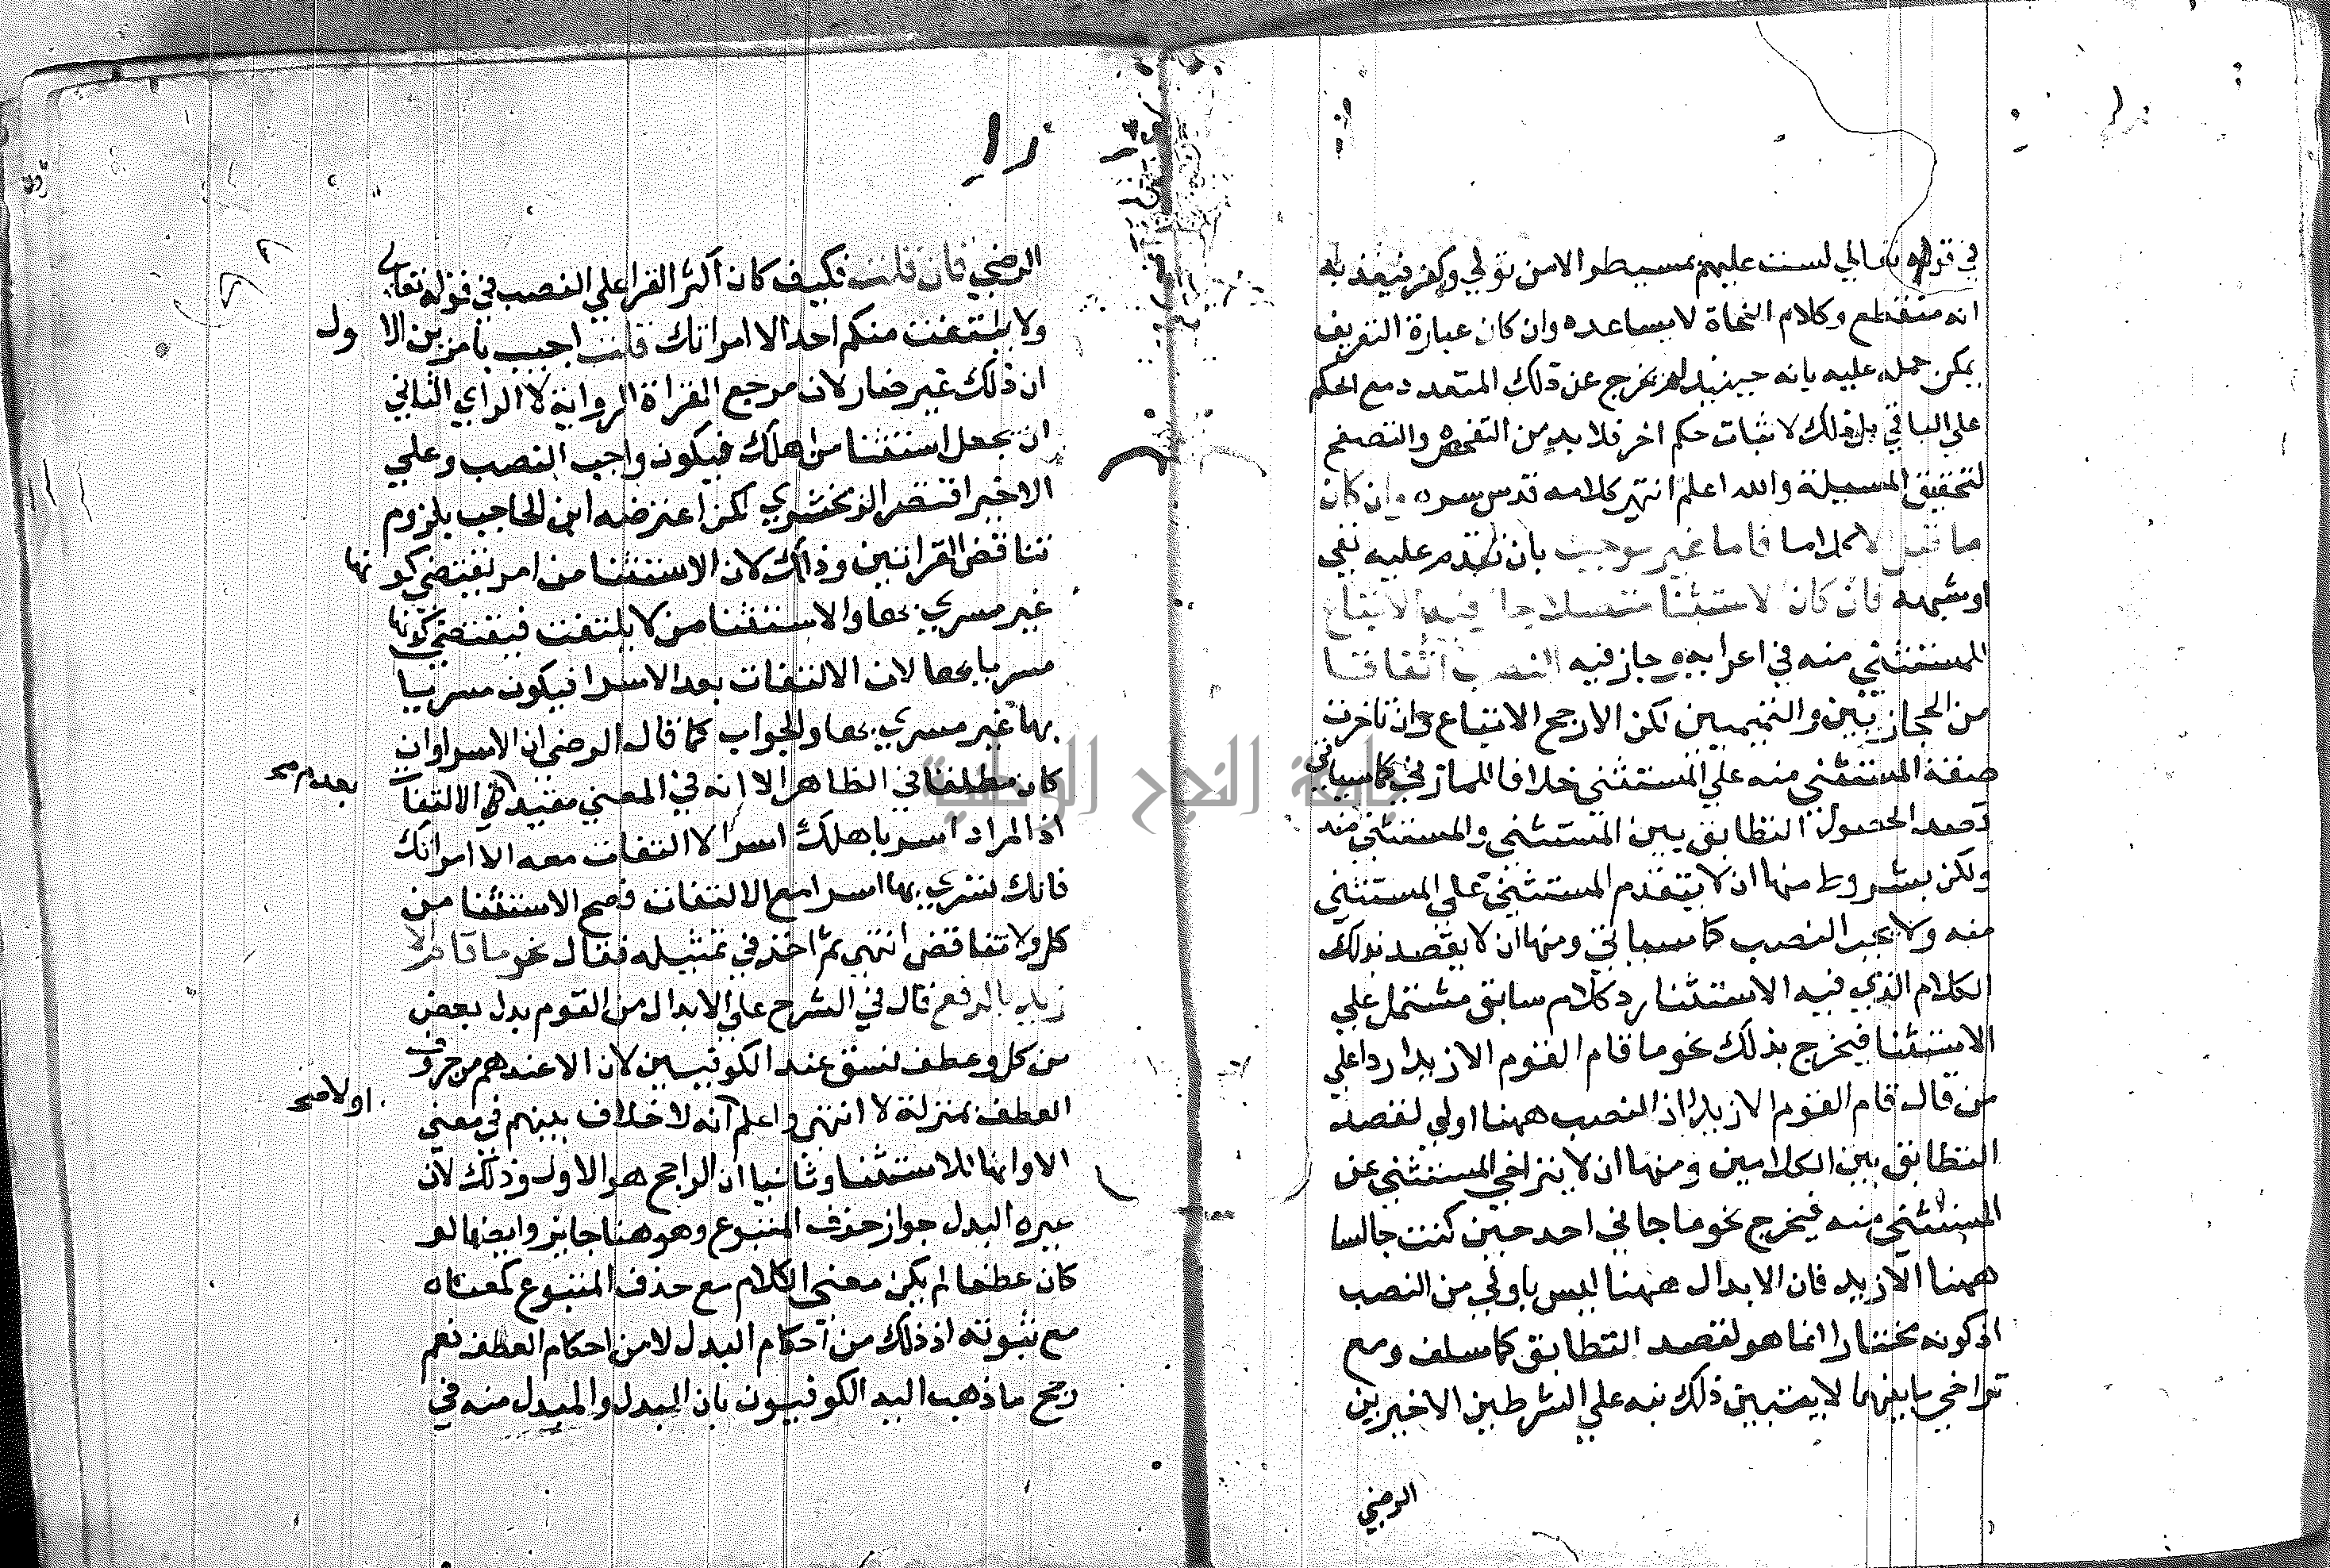 في قوله تعالي لست عليهم بمسيطر الا من تولي وكفر فيعذبه
انه منقطع وكلام النحاة لا يساعده وان كان عبارة التعريف
يمكن حمله عليه بانه حينيذ لم يخرج عن ذلك المتعدد مع الحكم
علي الباقي بل ذلك لاثبات حكم اخر فلا بد من التفحص والتصفح
لتحقيق المسيلة والله اعلم انتهي كلامه قدس سره وان كان
ما قبل الا اما فاما غير موجب بان تقدم عليه نفي
او شبهه فان كان الاستثنا متصلا جاز فيه الاتباع
المستثني منه في اعرابه وجاز فيه النصب اتفاقا
من الحجازيين والتميميين لكن الارجح الاتباع وان تاخرت
صفة المستثني منه علي المستثني خلافا للمازني كما سياتي
قصد الحصول التطابق بين المستثني والمستثني منه
ولكن بشروط منها ان لا يتقدم المستثني علي المستثني
منه ولا يجب النصب كما سياتي ومنها ان لا يقصد بذلك
الكلام الذي فيه الاستثنا رد كلام سابق مشتمل علي
الاستثنا فيخرج بذلك نحو ما قام القوم الا زيدا ردا علي
من قال قام القوم الا زيدا اذ النصب ههنا اولي لقصد
التطابق بين الكلامين ومنها ان لا يتراخي المستثني عن
المستثني منه فيخرج نحو ما جاني احد حين كنت جالسا
ههنا الا زيد فان الابدال ههنا ليس باولي من النصب
اذ كونه مختارا انما هو لقصد التطابق كما سلف ومع
تراخي ما بينهما لا يتبين ذلك نبه علي الشرطين الاخيرين
الرضي
الرضي فان قلت فكيف كان اكثر القرا علي النصب في قوله تعالي
ولا يلتفت منكم احد الا امراتك قلت اجيب بامرين الا ول
ان ذلك غير ضار لان مرجع القراة الرواية لا الراي الثاني
ان يجعل استثنا من اهلك فيكون واجب النصب وعلي
الاخير اقتصر الزمخشري لكن اعترضه ابن الحاجب بلزوم
تناقض القراتين وذلك لان الاستثنا من امر يقتضي كو نها
غير مسري بها والاستثنا من لا يلتفت فيقتضي كونها
مسريا بها لان الالتفات بعد الاسرا فيكون مسريا
بها غير مسري بها والجواب كما قال الرضي ان الاسرا وان
كان مطلقا في الظاهر الا انه في المعني مقيد الالتفا
بعدم صح
اذ المراد اسر باهلك اسرا لا التفات معه الا امراتك
فانك تسري بها اسرا مع الالتفات فصح الاستثنا من
كل ولا تناقض انتهي ثم اخذ في تمثيله فقال نحو ما قام الا
زيد بالرفع قال في الشرح علي الابدال من القوم بدل بعض
من كل وعطف نسق عند الكوفيين لان الا عندهم من حروف
العطف بمنزلة لا انتهي واعلم انه لا خلاف بينهم في معني
اولا صح
الا وانها للاستثنا وثانيا ان الراجح هو الاول وذلك لان
البدل جواز حذف المتبوع وهو هنا جايز وايضا لو
كان عطفا لم يكن معني الكلام مع حذف المتبوع كمعناه
مع ثبوته اذ ذلك من احكام البدل لا من احكام العطف نعم
رجح ما ذهب اليه الكوفيون بان البدل والمبدل منه في
جامعة النجاح الوطنية